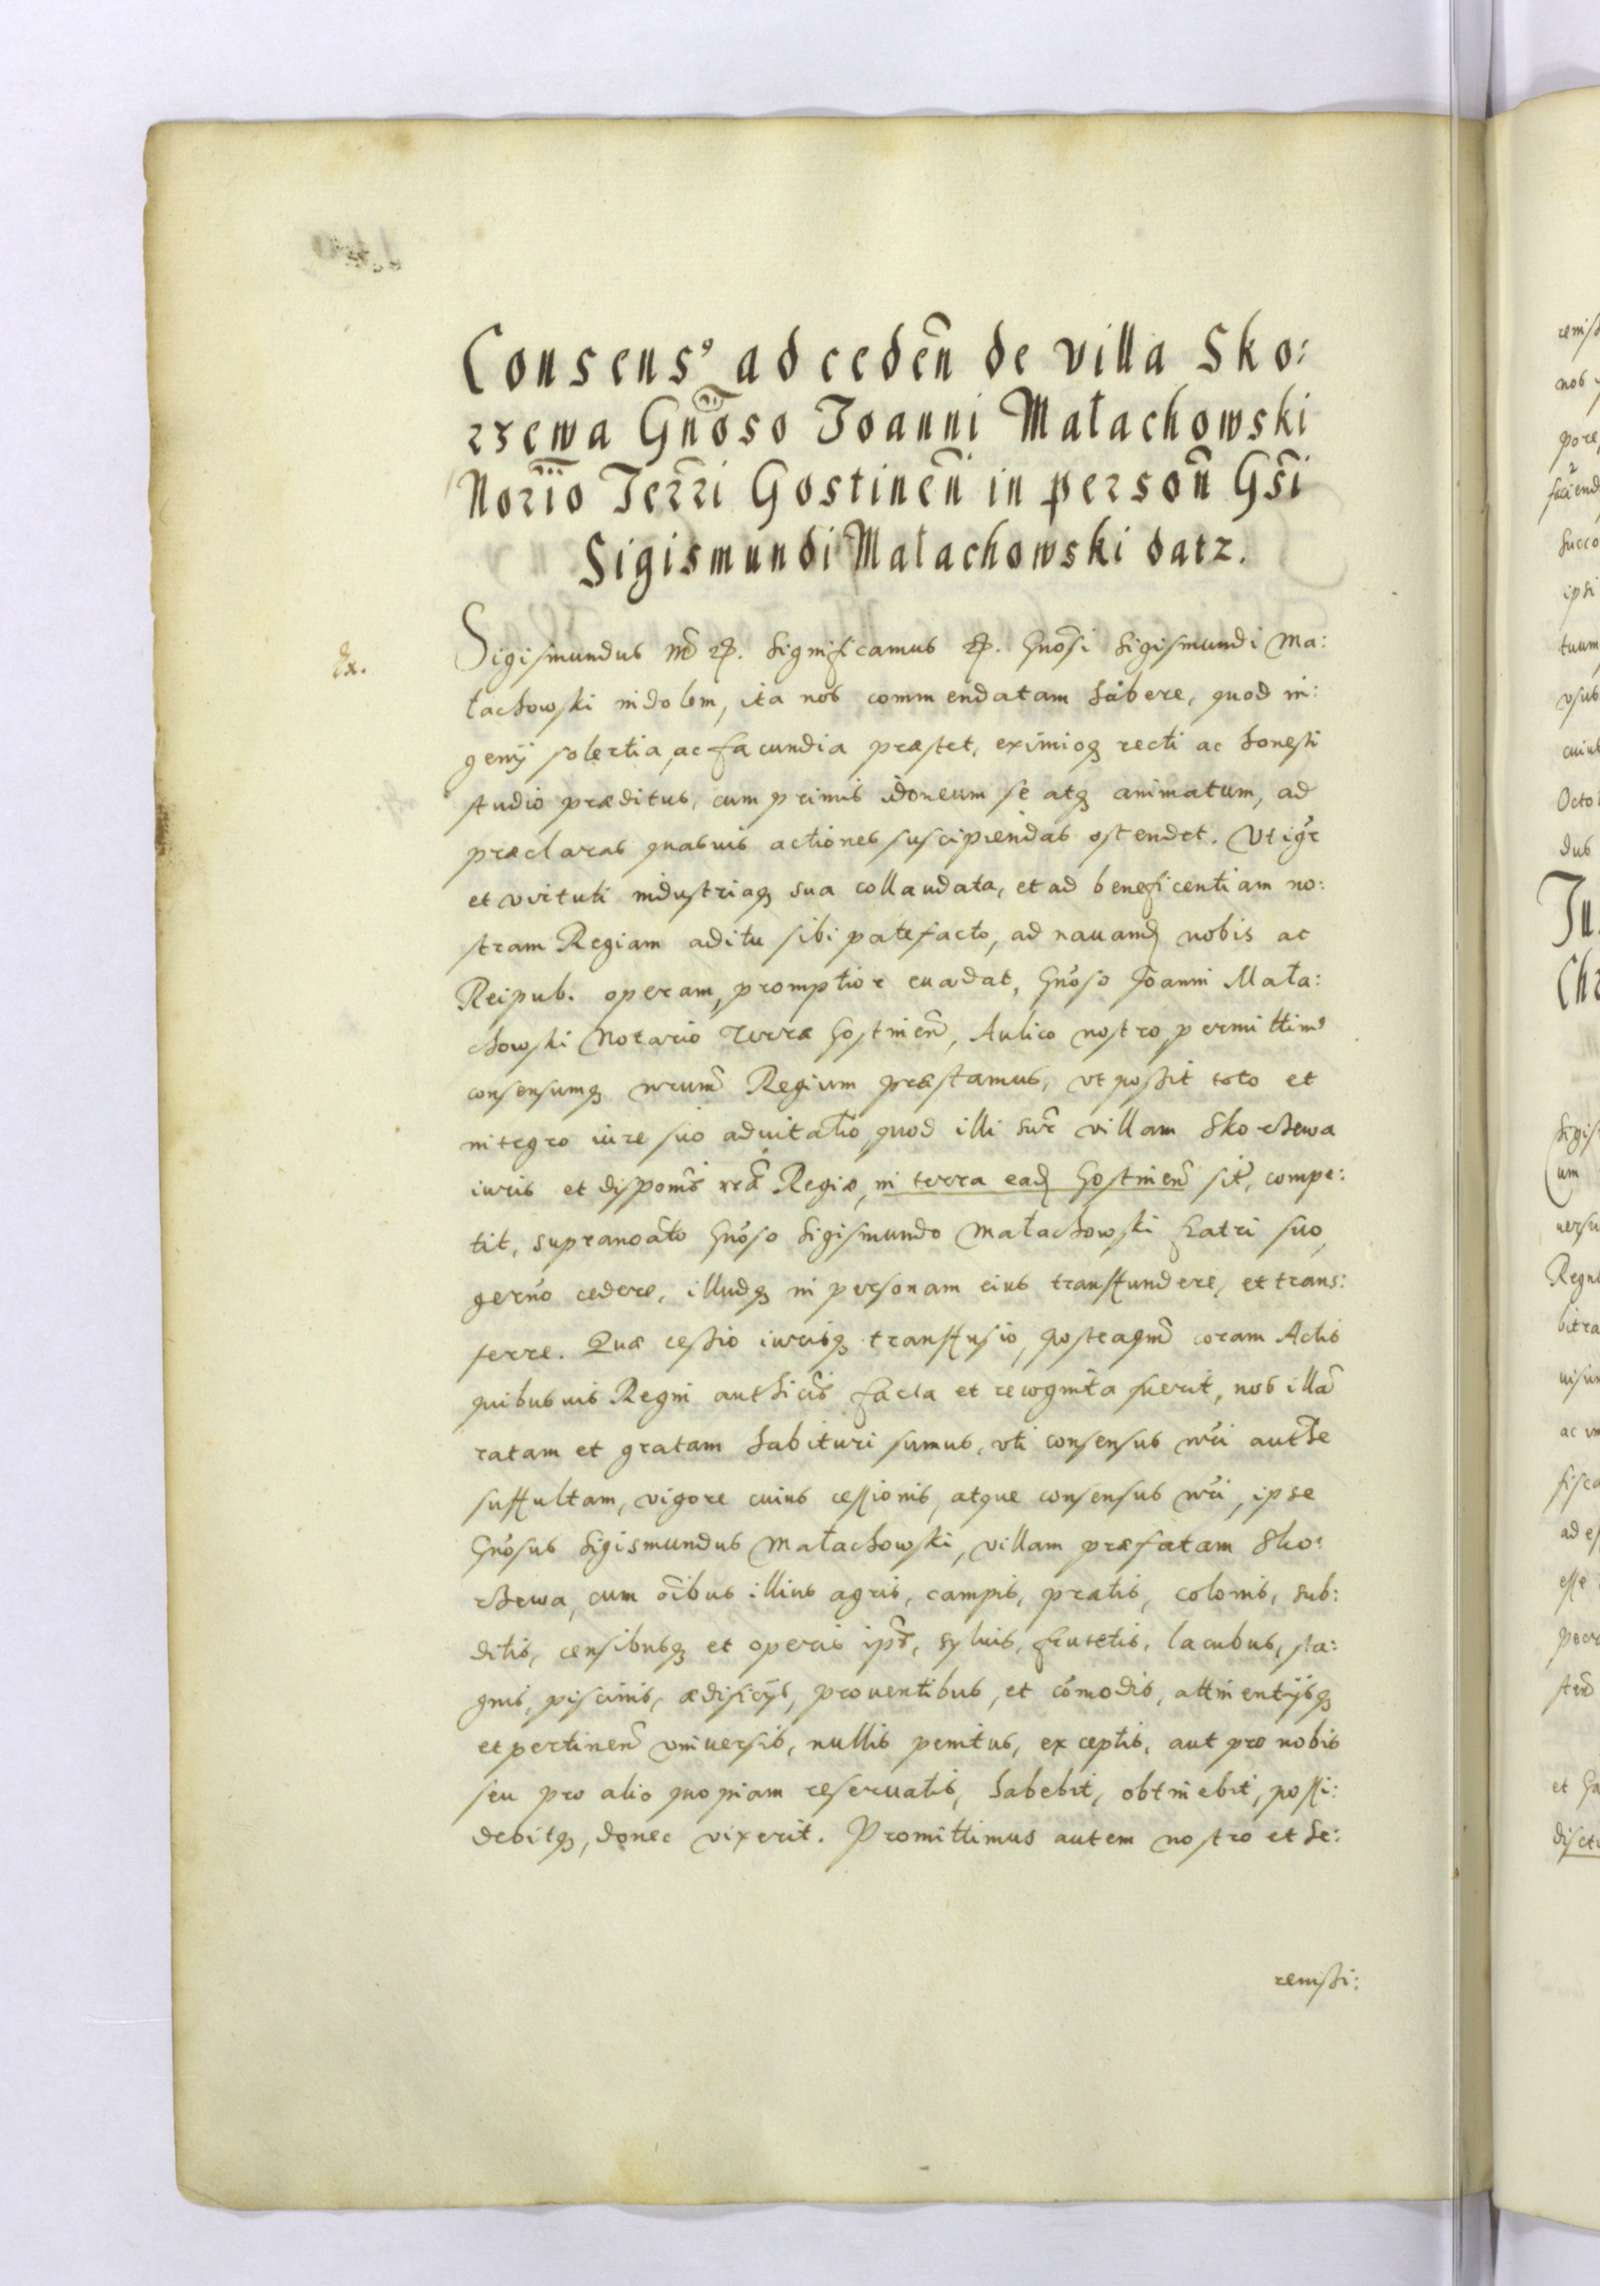 Consens9 ad cedeñ de villa Sko:
rzewa Gnoso Joanni Małachowski
Norio Terri Gostineñ in persoñ Gsi
Sigismundi Małachowski datz.
Ex.
Sigismundus etc. Significamus etc. Gnosi Sigismundi Ma:
łachowski indolem, ita nos commendatam habere, quod in:
genij solertia, ac facundia præstet, eximioq recti ac honesti
studio præditus, cum primis idoneum se atq animatum, ad
præclaras quasuis actiones suscipiendas ostendet. Vt igr
et virtuti industriaq sua collaudata, et ad beneficentiam no:
stram Regiam aditu sibi patefacto, ad nauand nobis ac
Reipub. operam, promptior euadat, Gnoso Joanni Mała:
chowski Notario Terræ Gostineñ, Aulico nostro, permittim9
consensumq nrum Regium præstamus, vt possit toto et
integro iure suo aduitalio, quod illi sur villam Skorzewa
iuris et dispoñis nra Regiæ, in terra ead Gostineñ sit, compe:
tit, supranoato Gnoso Sigismundo Małachowski fratri suo,
germo cedere, illudq in personam eius transfundere, et trans:
ferre. Quæ cessio iurisq transfusio, posteaqm coram Actis
quibusuis Regni authicis facta et recognita fuerit, nos illa
ratam et gratam habituri sumus, vti consensus nri authe
suffultam, vigore cuius cessionis, atque consensus nri, ipse
Gnosus Sigismundus Małachowski, villam præfatam Sko:
rzewa, cum oibus illius agris, campis, pratis, colonis, sub:
ditis, censibusq et operis ipor, syluis, frutetis, lacubus, sta:
gnis, piscinis, ædificijs, prouentibus, et comodis, attinentijsq
et pertineñ vniuersis, nullis penitus, exceptis, aut pro nobis
seu pro alio quopiam reseruatis, habebit, obtinebit, possi:
debitq, donec vixerit. Promittimus autem nostro et Se:
renissi: